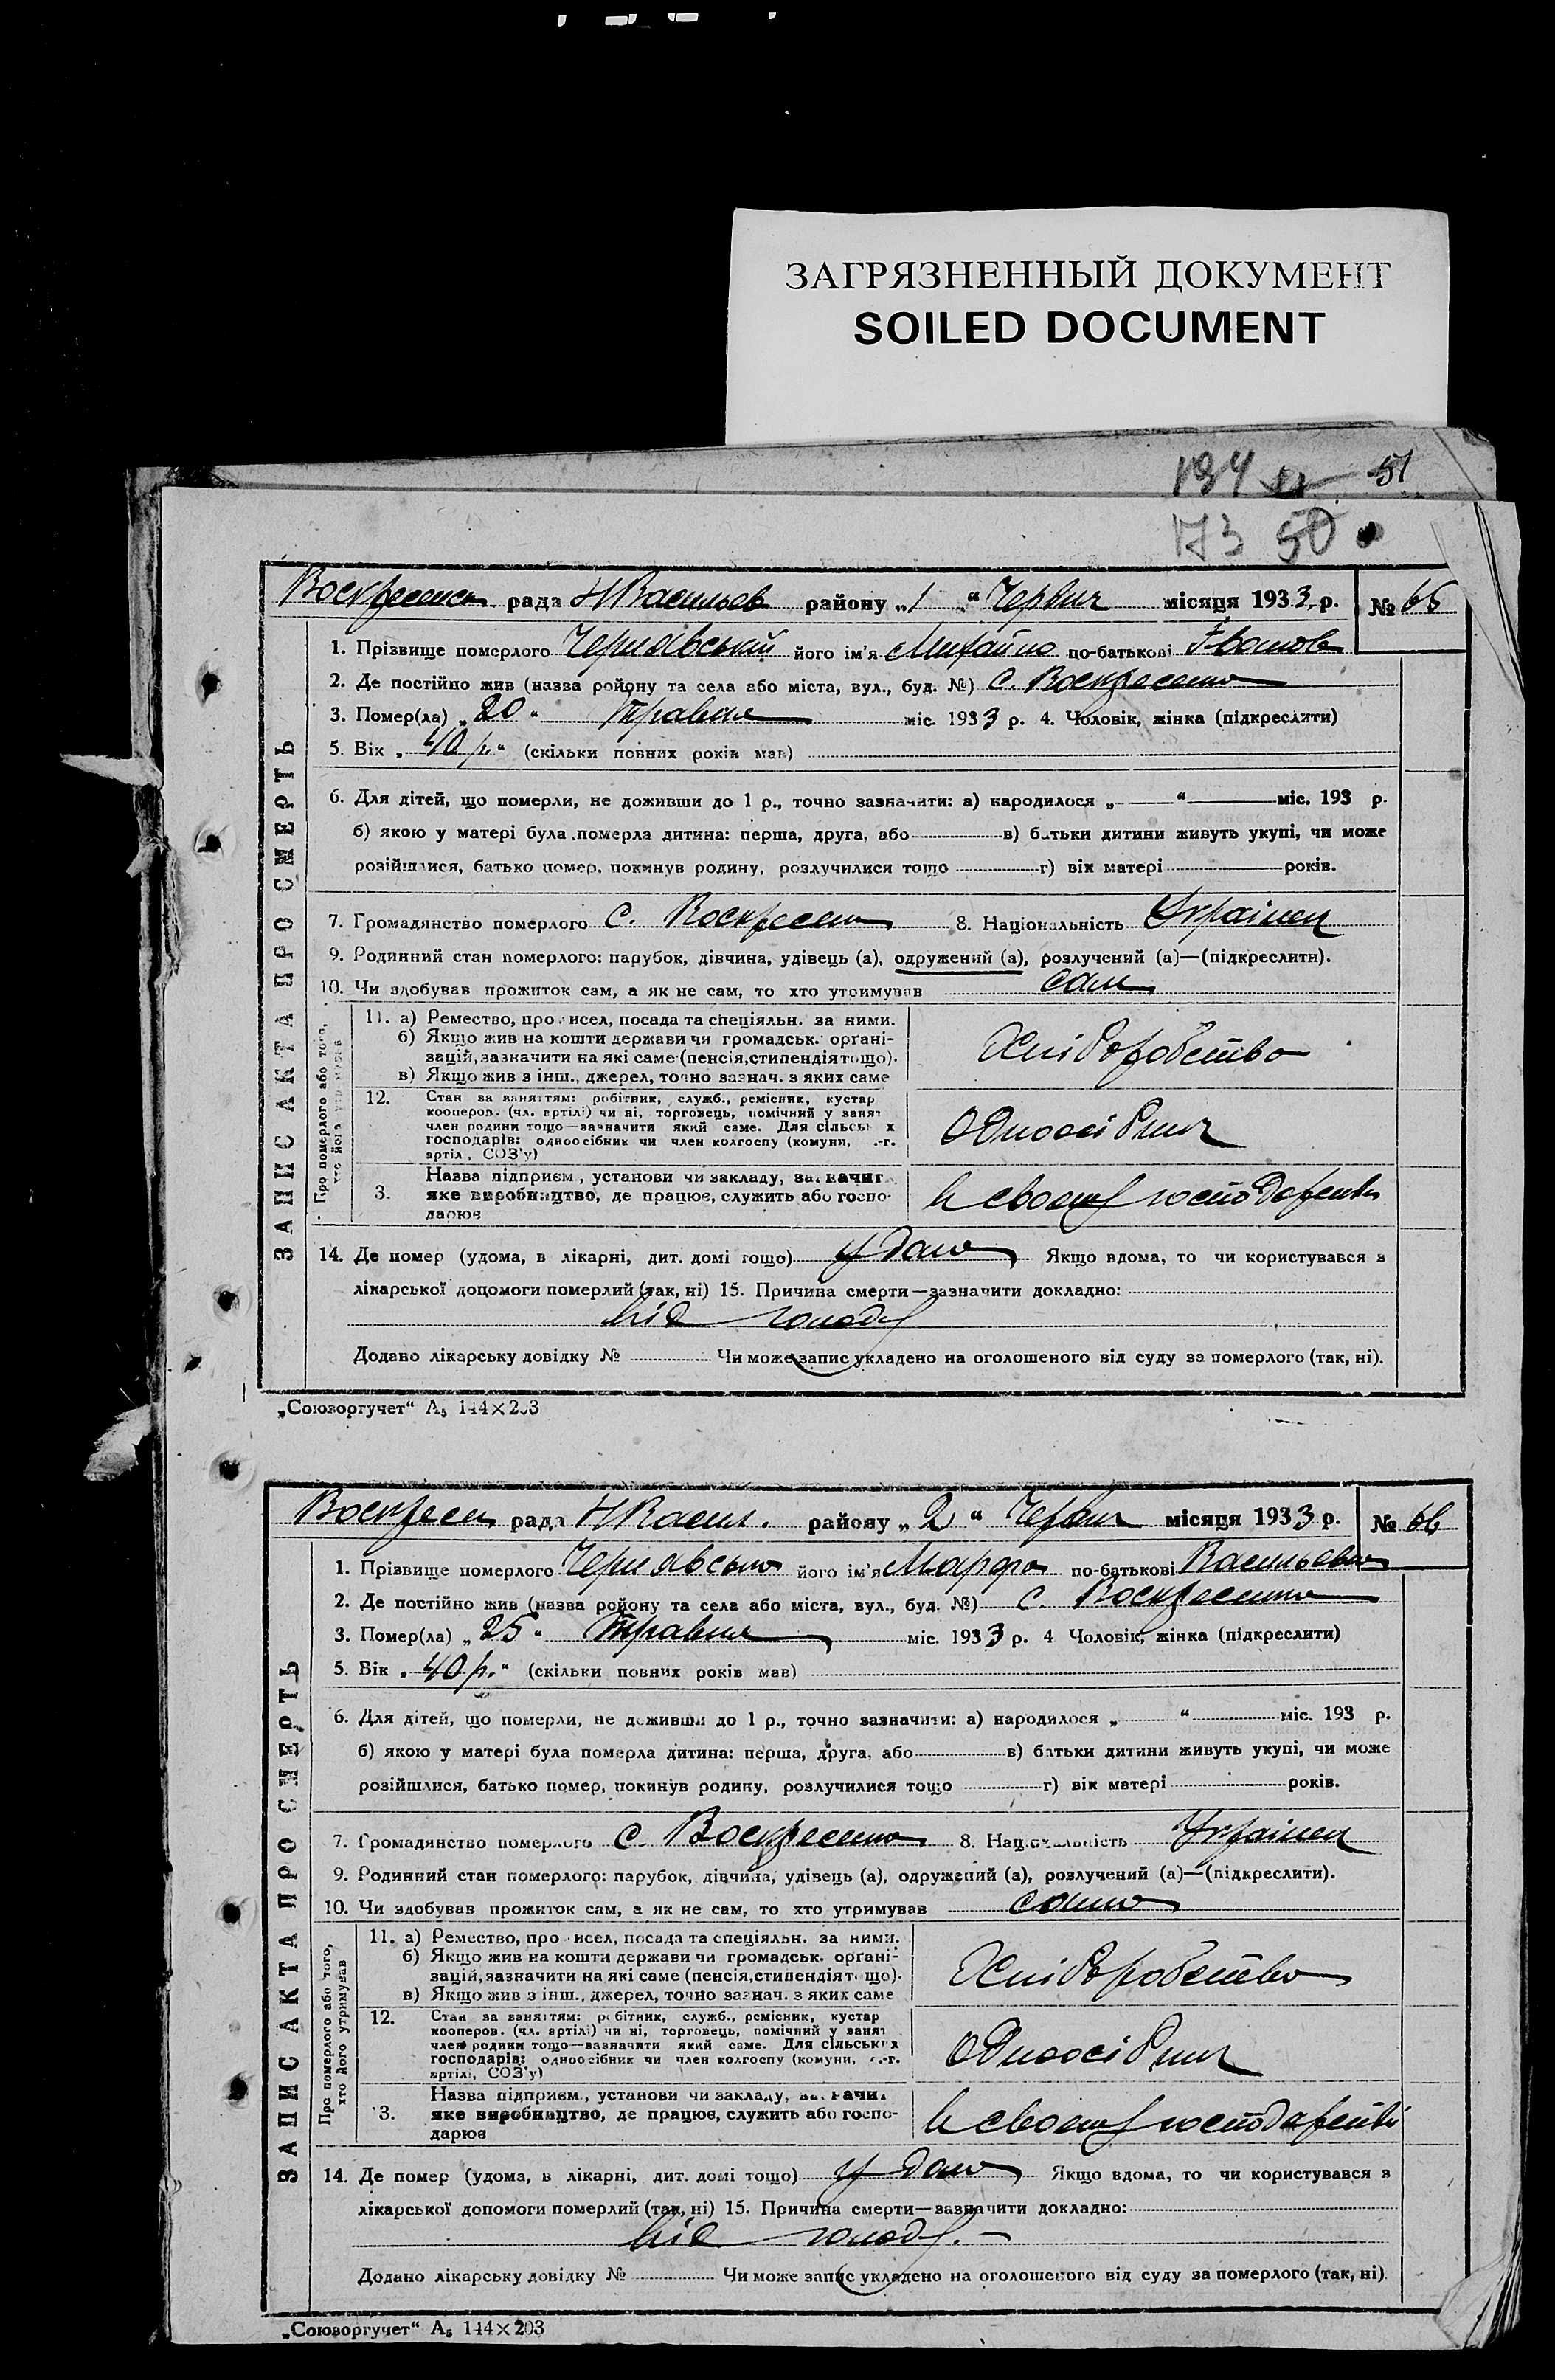 ЗАГРЯЗНЕННЫЙ ДОКУМЕНТ
SOILED DOCUMENT
194 51
173 50
Воскресенск рада НВасильев району „1“ Червня місяця 1933 р. № 65
1. Прізвище померлого Чернявський його ім'я Михайло по-батькові Іванов
2. Де постійно жив (назва району та села або міста, вул., буд. №) с. Воскресенка
3. Помер(ла) „20“ Травня міс. 1933 р. 4. Чоловік, жінка (підкреслити)
5. Вік „40 р.“ (скільки повних років мав)
6. Для дітей, що померли, не доживши до 1 р., точно зазначити: а) народилося „ “ міс. 193 р.
б) якою у матері була померла дитина: перша, друга, або в) батьки дитини живуть укупі, чи може
розійшлися, батько помер, покинув родину, розлучилися тощо г) вік матері років.
7. Громадянство померлого с. Воскресен 8. Національність Українец
9. Родинний стан померлого: парубок, дівчина, удівець (а), одружений (а), розлучений (а)—(підкреслити).
10. Чи здобував прожиток сам, а як не сам, то хто утримував сам
ЗАПИС АКТА ПРО СМЕРТЬ
Про померлого або того, хто його утримував
11. а) Ремество, промисел, посада та спеціяльн. за ними.
б) Якщо жив на кошти держави чи громадськ. орґані-
зацій, зазначити на які саме (пенсія, стипендія тощо).
в) Якщо жив з інш., джерел, точно зазнач. з яких саме
Хліборобство
12. Стан за заняттям: робітник, служб., ремісник, кустар
кооперов. (чл. артілі) чи ні, торговець, помічний у занят
член родини тощо—зазначити який саме. Для сільськ х
господарів: одноосібник чи член колгоспу (комуни, с.-г.
артілі, СОЗ'у)
Одноосібник
3. Назва підприєм., установи чи закладу, зазначит
яке виробництво, де працює, служить або госпо-
дарює
в своему господарстві
14. Де помер (удома, в лікарні, дит. домі тощо) у дома Якщо вдома, то чи користувався з
лікарської допомоги померлий (так, ні) 15. Причина смерти—зазначити докладно:
від голоду
Додано лікарську довідку № Чи може запис укладено на оголошеного від суду за померлого (так, ні).
„Союзоргучет“ А5 144×203
Воскресен рада НВасил. району „2“ Червня місяця 1933 р. № 66
1. Прізвище померлого Чернявська його ім'я Марфа по-батькові Васильевна
2. Де постійно жив (назва району та села або міста, вул., буд. №) с. Воскресенка
3. Помер(ла) „25“ Травня міс. 1933 р. 4 Чоловік, жінка (підкреслити)
5. Вік „40 р.“ (скільки повних років мав)
6. Для дітей, що померли, не доживши до 1 р., точно зазначити: а) народилося „ “ міс. 193 р.
б) якою у матері була померла дитина: перша, друга, або в) батьки дитини живуть укупі, чи може
розійшлися, батько помер, покинув родину, розлучилися тощо г) вік матері років.
7. Громадянство померлого с. Воскресенка 8. Національність Українец
9. Родинний стан померлого: парубок, дівчина, удівець (а), одружений (а), розлучений (а)—(підкреслити).
10. Чи здобував прожиток сам, а як не сам, то хто утримував сама
ЗАПИС АКТА ПРО СМЕРТЬ
Про померлого або того, хто його утримував
11. а) Ремество, промисел, посада та спеціяльн. за ними.
б) Якщо жив на кошти держави чи громадськ. орґані-
зацій, зазначити на які саме (пенсія, стипендія тощо).
в) Якщо жив з інш., джерел, точно зазнач. з яких саме
Хліборобство
12. Стан за заняттям: робітник, служб., ремісник, кустар
кооперов. (чл. артілі) чи ні, торговець, помічний у занят
член родини тощо—зазначити який саме. Для сільських
господарів: одноосібник чи член колгоспу (комуни, с.-г.
артілі, СОЗ'у)
Одноосібник
3. Назва підприєм., установи чи закладу, зазначи
яке виробництво, де працює, служить або госпо-
дарює
в своему господарстві
14. Де помер (удома, в лікарні, дит. домі тощо) у дома Якщо вдома, то чи користувався з
лікарської допомоги померлий (так, ні) 15. Причина смерти—зазначити докладно:
від голоду.
Додано лікарську довідку № Чи може запис укладено на оголошеного від суду за померлого (так, ні)
„Союзоргучет“ А5 144×203